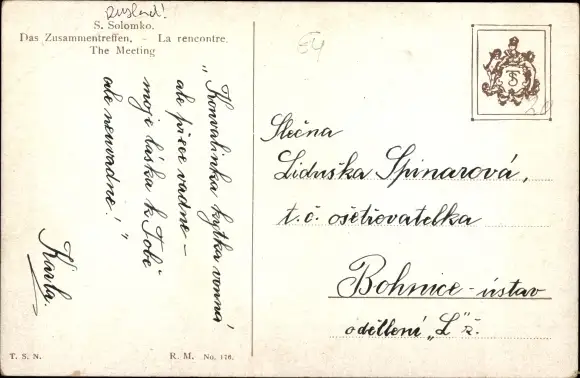 Rusland!
S. Solomko.
Das Zusammentreffen. - La rencontre.
The Meeting
„Konvalinka kytka vonná
ale přece vadne -
moje láska k Tobě
ale neuvadne!"
Karla.
Slečna
Liduška Spinarová,
t. č. ošetřovatelka
Bohnice - ústav
oddělení „L" ž.
T. S. N.
R. M. No. 176.